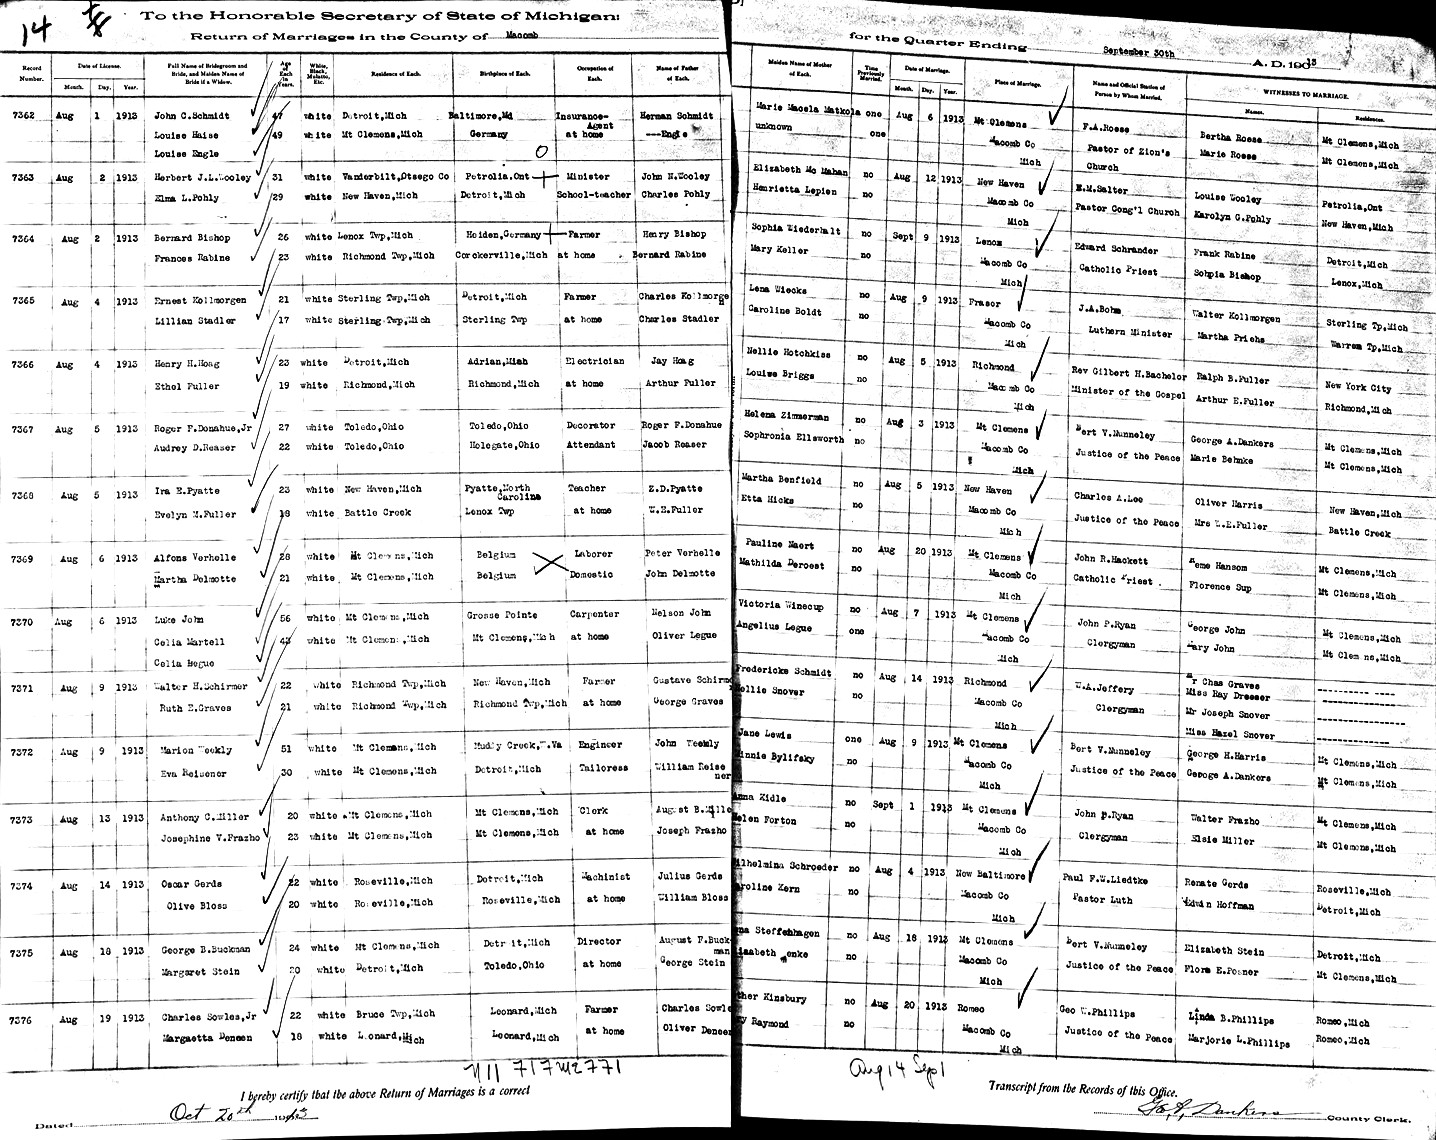 14
To the Honorable Secretary of State of Michigan:
Return of Marriages in the County of Macomb
for the Quarter Ending September 30th A. D. 1913
Record Number. Date of License. Month. Day. Year. Full Name of Bridegroom and Bride, and Maiden Name of Bride if a Widow. Age of Each in Years. White, Black, Mulatto, Etc. Residence of Each. Birthplace of Each. Occupation of Each. Name of Father of Each.
Maiden Name of Mother of Each. Time Previously Married. Date of Marriage. Month. Day. Year. Place of Marriage. Name and Official Station of Person by Whom Married. WITNESSES TO MARRIAGE. Names. Residences.
7362 Aug 1 1913 John C.Schmidt 47 white Detroit,Mich Baltimore,Md Insurance-Agent Herman Schmidt Marie Macela Matkola one Aug 6 1913 Mt Clemens F.A.Roese Bertha Roese Mt Clemens,Mich
Louise Haise 49 white Mt Clemens,Mich Germany at home ---Engle unknown one Macomb Co Pastor of Zion's Marie Roese Mt Clemens,Mich
Louise Engle Mich Church
7363 Aug 2 1913 Herbert J.L.Wooley 31 white Vanderbilt,Otsego Co Petrolia,Ont Minister John N.Wooley Elizabeth Mc Mahan no Aug 12 1913 New Haven E.M.Salter Louise Wooley Petrolia,Ont
Elma L.Pohly 29 white New Haven,Mich Detroit,Mich School-teacher Charles Pohly Henrietta Lepien no Macomb Co Pastor Cong'l Church Karolyn G.Pohly New Haven,Mich
Mich
7364 Aug 2 1913 Bernard Bishop 26 white Lenox Twp,Mich Heiden,Germany Farmer Henry Bishop Sophia Wiederhalt no Sept 9 1913 Lenox Edward Schrander Frank Rabine Detroit,Mich
Frances Rabine 23 white Richmond Twp,Mich Corckerville,Mich at home Bernard Rabine Mary Keller no Macomb Co Catholic Priest Sohpia Bishop Lenox,Mich
Mich
7365 Aug 4 1913 Ernest Kollmorgen 21 white Sterling Twp,Mich Detroit,Mich Farmer Charles Kollmorgen Lena Wiecks no Aug 9 1913 Fraser J.A.Bohm Walter Kollmorgen Sterling Tp,Mich
Lillian Stadler 17 white Sterling Twp,Mich Sterling Twp at home Charles Stadler Caroline Boldt no Macomb Co Luthern Minister Martha Priehs Warren Tp,Mich
Mich
7366 Aug 4 1913 Henry H.Hoag 23 white Detroit,Mich Adrian,Mich Electrician Jay Hoag Nellie Hotchkiss no Aug 5 1913 Richmond Rev Gilbert H.Bachelor Ralph B.Fuller New York City
Ethel Fuller 19 white Richmond,Mich Richmond,Mich at home Arthur Fuller Louise Briggs no Macomb Co Minister of the Gospel Arthur E.Fuller Richmond,Mich
Mich
7367 Aug 5 1913 Roger F.Donahue,Jr 27 white Toledo,Ohio Toledo,Ohio Decorator Roger F.Donahue Helena Zimmerman no Aug 3 1913 Mt Clemens Bert V.Nunneley George A.Dankers Mt Clemens,Mich
Audrey D.Reaser 22 white Toledo,Ohio Holegate,Ohio Attendant Jacob Reaser Sophronia Ellsworth no Macomb Co Justice of the Peace Marie Behnke Mt Clemens,Mich
Mich
7368 Aug 5 1913 Ira E.Pyatte 23 white New Haven,Mich Pyatte,North Carolina Teacher Z.D.Pyatte Martha Benfield no Aug 5 1913 New Haven Charles A.Lee Oliver Harris New Haven,Mich
Evelyn M.Fuller 18 white Battle Creek Lenox Twp at home W.E.Fuller Etta Hicks no Macomb Co Justice of the Peace Mrs W.E.Fuller Battle Creek
Mich
7369 Aug 6 1913 Alfons Verhelle 28 white Mt Clemens,Mich Belgium Laborer Peter Verhelle Pauline Naert no Aug 20 1913 Mt Clemens John R.Hackett Reme Hansom Mt Clemens,Mich
Martha Delmotte 21 white Mt Clemens,Mich Belgium Domestic John Delmotte Mathilda Deroest no Macomb Co Catholic Priest Florence Sup Mt Clemens,Mich
Mich
7370 Aug 6 1913 Luke John 56 white Mt Clemens,Mich Grosse Pointe Carpenter Nelson John Victoria Winecup no Aug 7 1913 Mt Clemens John P.Ryan George John Mt Clemens,Mich
Celia Martell 43 white Mt Clemens,Mich Mt Clemens,Mich at home Oliver Legue Angelius Legue one Macomb Co Clergyman Mary John Mt Clemens,Mich
Celia Begue Mich
7371 Aug 9 1913 Walter H.Schirmer 22 white Richmond Twp,Mich New Haven,Mich Farmer Gustave Schirme Fredericke Schmidt no Aug 14 1913 Richmond W.A.Jeffery Mr Chas Graves
Ruth E.Graves 21 white Richmond Twp,Mich Richmond Twp,Mich at home George Graves Nellie Snover no Macomb Co Clergyman Miss Ray Dresser
Mr Joseph Snover
Mich Miss Hazel Snover
7372 Aug 9 1913 Marion Weekly 51 white Mt Clemens,Mich Muddy Creek,W.Va Engineer John Weekly Jane Lewis one Aug 9 1913 Mt Clemens Bert V.Nunneley George H.Harris Mt Clemens,Mich
Eva Reisener 30 white Mt Clemens,Mich Detroit,Mich Tailoress William Reisener Minnie Bylifsky no Macomb Co Justice of the Peace George A.Dankers Mt Clemens,Mich
Mich
7373 Aug 13 1913 Anthony C.Miller 20 white Mt Clemens,Mich Mt Clemens,Mich Clerk August B.Mille Anna Kidle no Sept 1 1913 Mt Clemens John P.Ryan Walter Frazho Mt Clemens,Mich
Josephine V.Frazho 23 white Mt Clemens,Mich Mt Clemens,Mich at home Joseph Frazho Helen Forton no Macomb Co Clergyman Elsie Miller Mt Clemens,Mich
Mich
7374 Aug 14 1913 Oscar Gerds 22 white Roseville,Mich Detroit,Mich Machinist Julius Gerds ilhelmina Schroeder no Aug 4 1913 New Baltimore Paul F.W.Liedtke Renate Gerds Roseville,Mich
Olive Bloss 20 white Roseville,Mich Roseville,Mich at home William Bloss aroline Kern no Macomb Co Pastor Luth Edwin Hoffman Detroit,Mich
Mich
7375 Aug 18 1913 George B.Buckman 24 white Mt Clemens,Mich Detroit,Mich Director August F.Buckman na Steffenhagen no Aug 18 1913 Mt Clemens Bert V.Nunneley Elizabeth Stein Detroit,Mich
Margaret Stein 20 white Detroit,Mich Toledo,Ohio at home George Stein lizabeth enke no Macomb Co Justice of the Peace Flora E.Posner Mt Clemens,Mich
Mich
7376 Aug 19 1913 Charles Sowles,Jr 22 white Bruce Twp,Mich Leonard,Mich Farmer Charles Sowle ther Kinsbury no Aug 20 1913 Romeo Geo W.Phillips Linda B.Phillips Romeo,Mich
Margaetta Deneen 18 white Leonard,Mich Leonard,Mich at home Oliver Deneen y Raymond no Macomb Co Justice of the Peace Marjorie L.Phillips Romeo,Mich
Mich
Aug 14 Sep 1
I hereby certify that the above Return of Marriages is a correct Transcript from the Records of this Office.
Dated Oct 20th 1913 Dankers County Clerk.